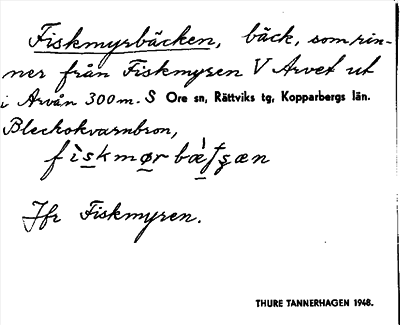 Fiskmyrbäcken, bäck, som rin-
ner från Fiskmyren V Arvet ut
i Arvån 300 m. S Ore sn, Rättviks tg, Kopparbergs län.
Bleckokvarnbron,
Jfr Fiskmyren.
THURE TANNERHAGEN 1948.